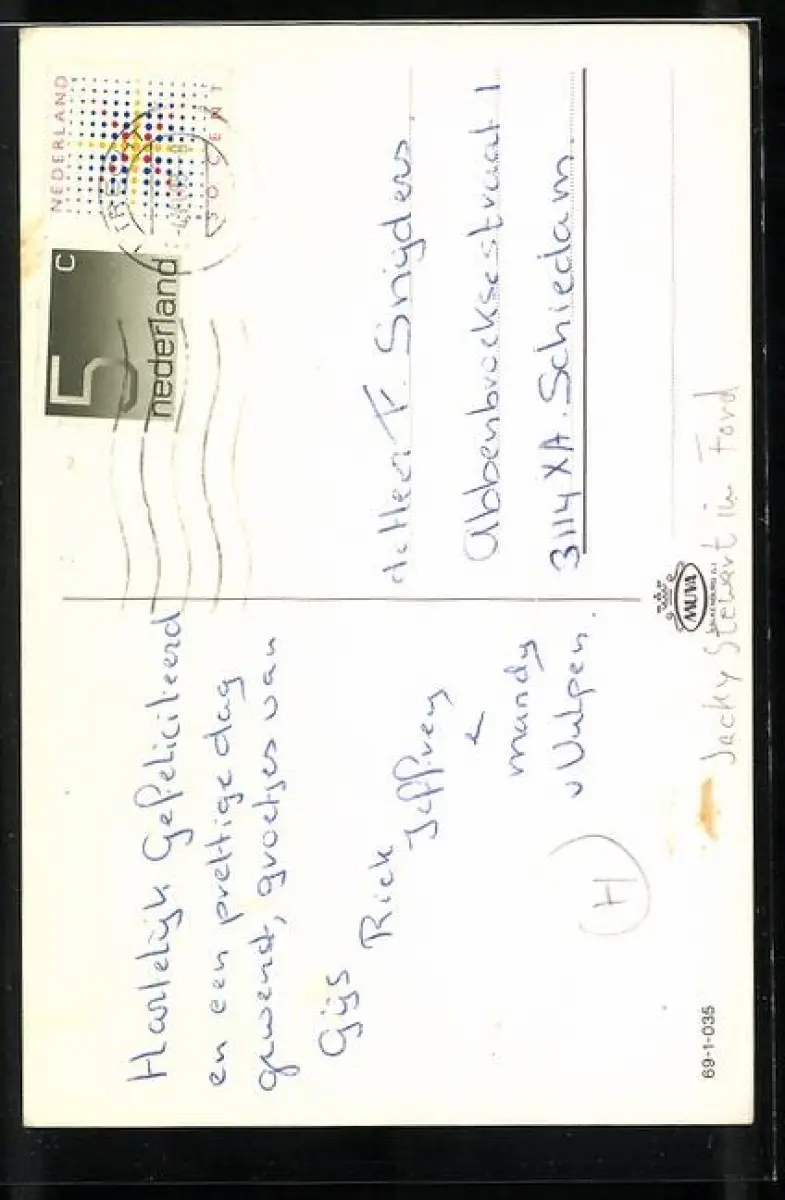 Hartelijk Gefeliciteerd
en een prettige dag
gewenst, groetjes van
Gijs
Rick
Jeffrey
e
Mandy
v Vulpen.
69-1-035
NEDERLAND
50 CENT
5 c
nederland
F. Snijders.
Abbenbroeksestraat 1
3114 XA. Schiedam.
MUVA
Jacky Stewart in Ford
H